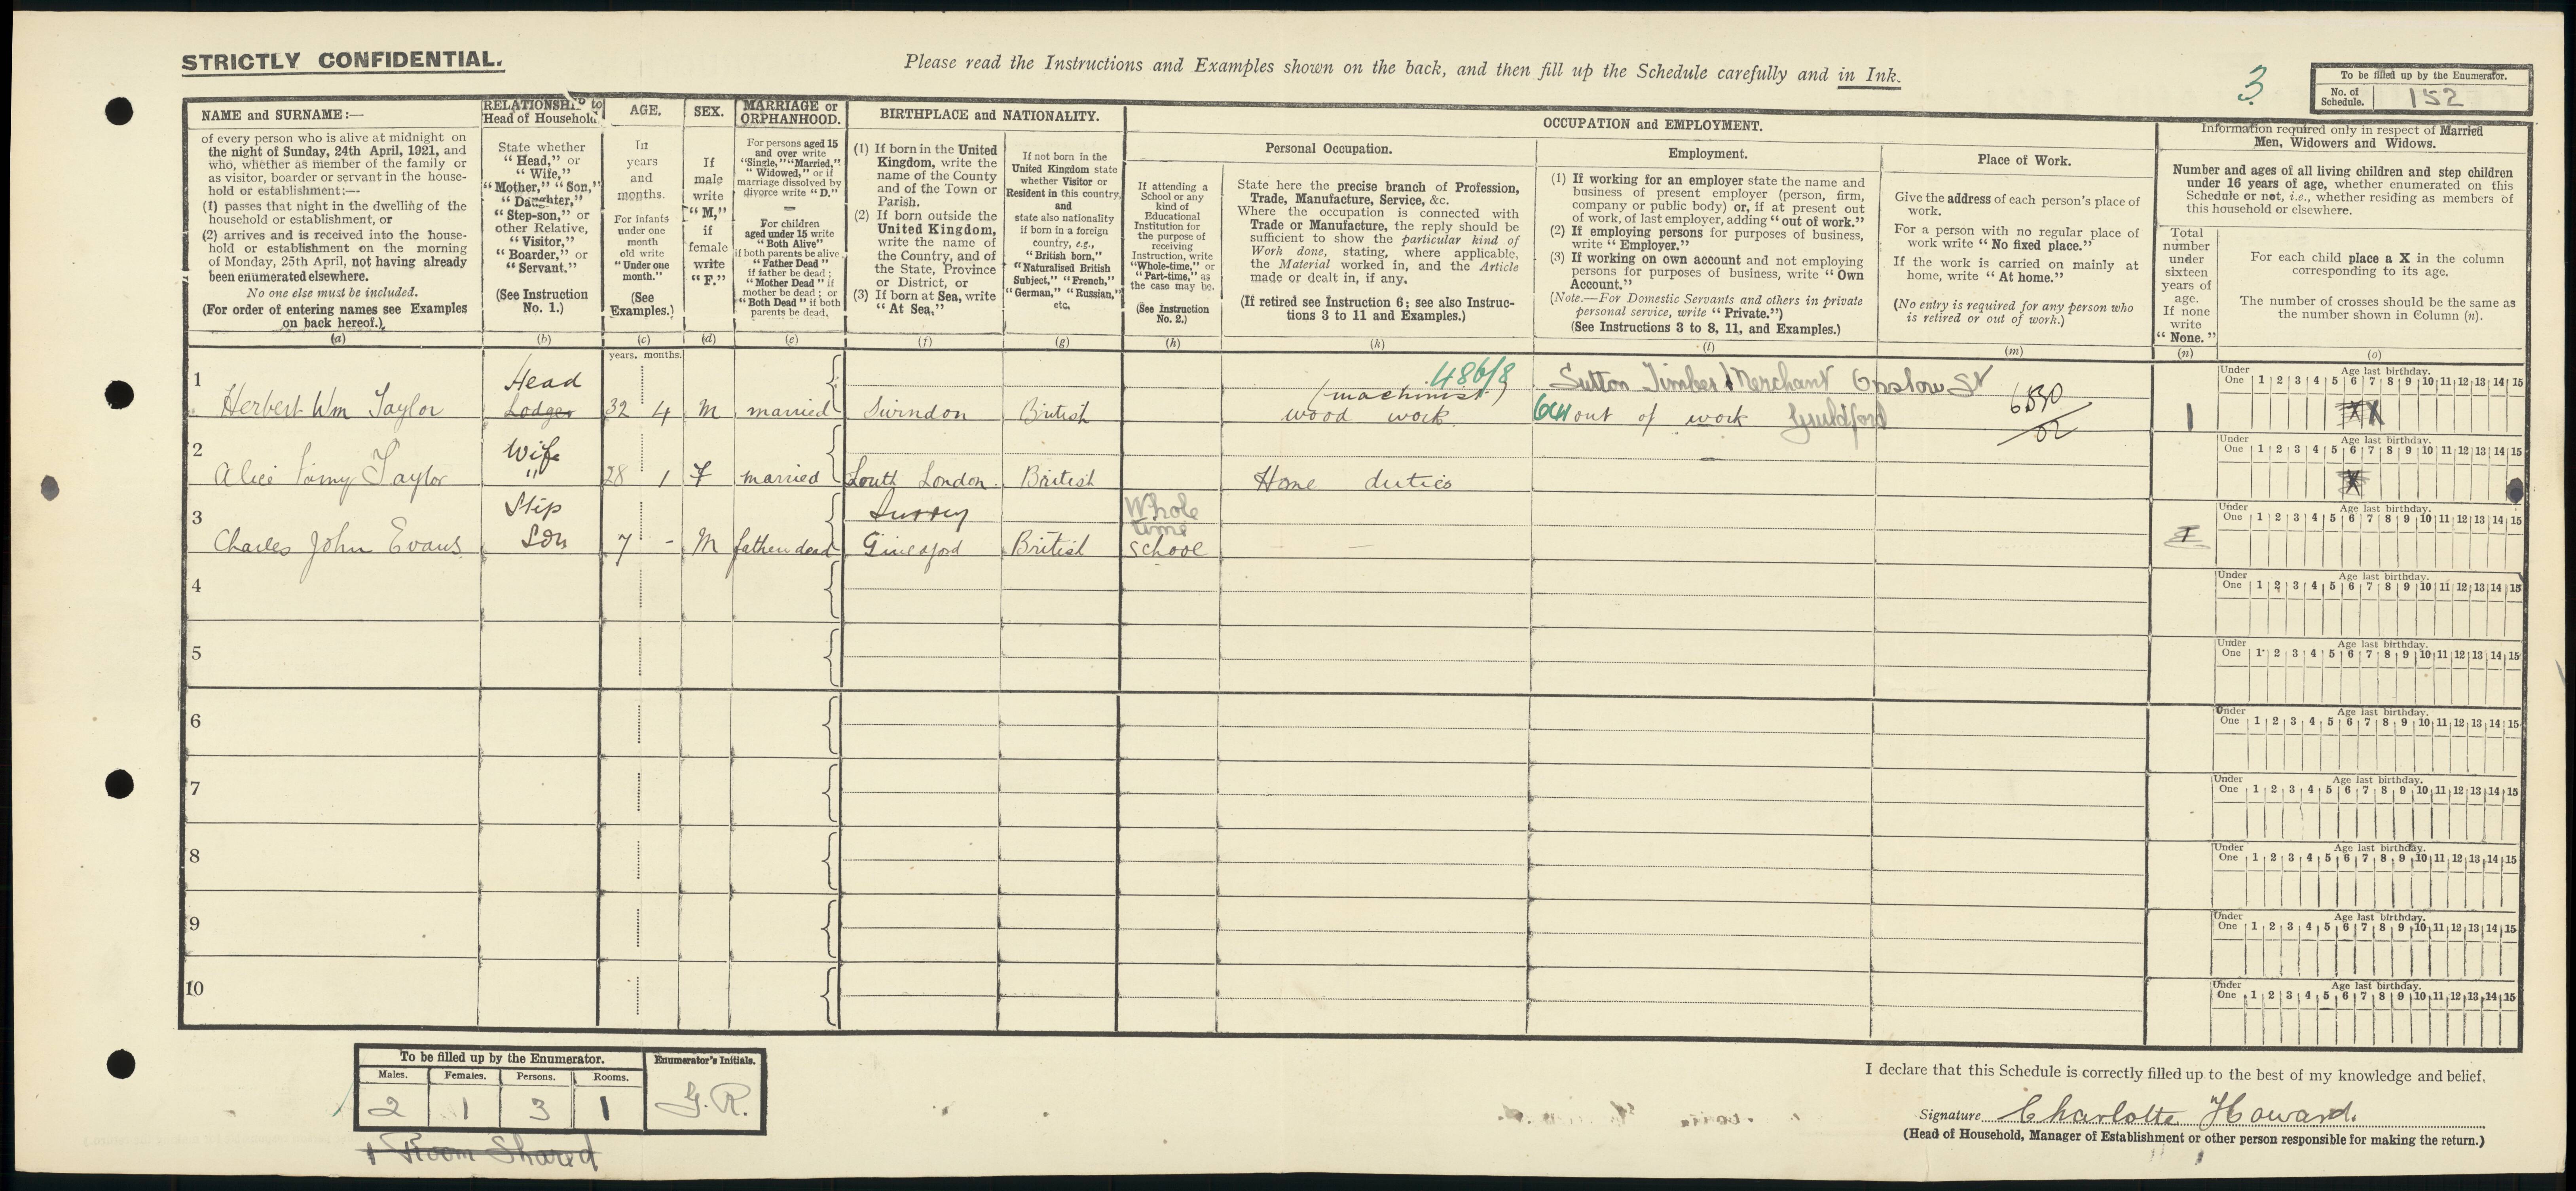 STRICTLY CONFIDENTIAL.
Please read the Instructions and Examples shown on the back, and then fill up the Schedule carefully and in Ink.
3
To be filled up by the Enumerator.
No. of Schedule. 152
NAME and SURNAME:—
of every person who is alive at midnight on
the night of Sunday, 24th April, 1921, and
who, whether as member of the family or
as visitor, boarder or servant in the house-
hold or establishment:—
(1) passes that night in the dwelling of the
household or establishment, or
(2) arrives and is received into the house-
hold or establishment on the morning
of Monday, 25th April, not having already
been enumerated elsewhere.
No one else must be included.
(For order of entering names see Examples
on back hereof.)
(a)
RELATIONSHIP to
Head of Household.
State whether
"Head," or
"Wife,"
"Mother," "Son,"
"Daughter,"
"Step-son," or
other Relative,
"Visitor,"
"Boarder," or
"Servant."
(See Instruction
No. 1.)
(b)
AGE.
In
years
and
months.
For infants
under one
month
old write
"Under one
month."
(See
Examples.)
(c)
SEX.
If
male
write
"M,"
if
female
write
"F."
(d)
MARRIAGE or
ORPHANHOOD.
For persons aged 15
and over write
"Single," "Married,"
"Widowed," or if
marriage dissolved by
divorce write "D."
—
For children
aged under 15 write
"Both Alive"
if both parents be alive
"Father Dead" if
if father be dead;
"Mother Dead" if
mother be dead; or
"Both Dead" if both
parents be dead.
(e)
BIRTHPLACE and NATIONALITY.
(1) If born in the United
Kingdom, write the
name of the County
and of the Town or
Parish.
(2) If born outside the
United Kingdom,
write the name of
the Country, and of
the State, Province
or District, or
(3) If born at Sea, write
"At Sea,"
(f)
If not born in the
United Kingdom state
whether Visitor or
Resident in this country,
and
state also nationality
if born in a foreign
country, e.g.,
"British born,"
"Naturalised British
Subject," "French,"
"German," "Russian,"
etc.
(g)
OCCUPATION and EMPLOYMENT.
If attending a
School or any
kind of
Educational
Institution for
the purpose of
receiving
Instruction, write
"Whole-time," or
"Part-time," as
the case may be.
(See Instruction
No. 2.)
(h)
Personal Occupation.
State here the precise branch of Profession,
Trade, Manufacture, Service, &c.
Where the occupation is connected with
Trade or Manufacture, the reply should be
sufficient to show the particular kind of
Work done, stating, where applicable,
the Material worked in, and the Article
made or dealt in, if any.
(If retired see Instruction 6; see also Instruc-
tions 3 to 11 and Examples.)
(k)
Employment.
(1) If working for an employer state the name and
business of present employer (person, firm,
company or public body) or, if at present out
of work, of last employer, adding "out of work."
(2) If employing persons for purposes of business,
write "Employer."
(3) If working on own account and not employing
persons for purposes of business, write "Own
Account."
(Note.—For Domestic Servants and others in private
personal service, write "Private.")
(See Instructions 3 to 8, 11, and Examples.)
(l)
Place of Work.
Give the address of each person's place of
work.
For a person with no regular place of
work write "No fixed place."
If the work is carried on mainly at
home, write "At home."
(No entry is required for any person who
is retired or out of work.)
(m)
Information required only in respect of Married
Men, Widowers and Widows.
Number and ages of all living children and step children
under 16 years of age, whether enumerated on this
Schedule or not, i.e., whether residing as members of
this household or elsewhere.
Total
number
under
sixteen
years of
age.
If none
write
"None."
(n)
For each child place a X in the column
corresponding to its age.
The number of crosses should be the same as
the number shown in Column (n).
(o)
years. months.
1
Head
Lodger
Herbert Wm Taylor 32 4 M married Swindon British
486/8
(machinist)
wood work
Sutton Timber Merchant Onslow St
641 out of work Guildford
1
Under One 1 2 3 4 5 6 7 8 9 10 11 12 13 14 15
Age last birthday.
X X
2
Wife
"
Alice Taylor 28 1 F married South London British Home duties
Under One 1 2 3 4 5 6 7 8 9 10 11 12 13 14 15
Age last birthday.
X
3
Step
Son
Charles John Evans 7 - M father dead
Surrey
Guildford British
Whole
time
School
Under One 1 2 3 4 5 6 7 8 9 10 11 12 13 14 15
Age last birthday.
4
Under One 1 2 3 4 5 6 7 8 9 10 11 12 13 14 15
Age last birthday.
5
Under One 1 2 3 4 5 6 7 8 9 10 11 12 13 14 15
Age last birthday.
6
Under One 1 2 3 4 5 6 7 8 9 10 11 12 13 14 15
Age last birthday.
7
Under One 1 2 3 4 5 6 7 8 9 10 11 12 13 14 15
Age last birthday.
8
Under One 1 2 3 4 5 6 7 8 9 10 11 12 13 14 15
Age last birthday.
9
Under One 1 2 3 4 5 6 7 8 9 10 11 12 13 14 15
Age last birthday.
10
Under One 1 2 3 4 5 6 7 8 9 10 11 12 13 14 15
Age last birthday.
To be filled up by the Enumerator.
Males. Females. Persons. Rooms.
2 1 3 1
Enumerator's Initials.
G. R.
1 Room Shared
I declare that this Schedule is correctly filled up to the best of my knowledge and belief.
Signature Charlotte Howard.
(Head of Household, Manager of Establishment or other person responsible for making the return.)